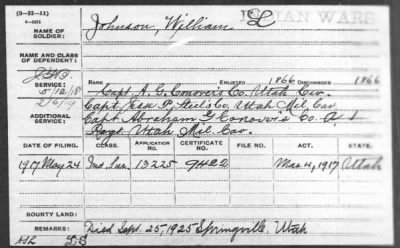 (3-H-11)
INDIAN WARS
NAME OF SOLDIER:
Johnson, William L
NAME AND CLASS OF DEPENDENT:
SERVICE:
5/12/18
2/6/19
RANK ENLISTED 1866 DISCHARGED 1866
Capt. A. G. Conover's Co. Utah Cav.
Capt. Jesse P. Steel's Co. Utah Mil. Cav
ADDITIONAL SERVICE:
Capt. Abraham G Conover's Co. A 1
Regt. Utah Mil. Cav.
DATE OF FILING. CLASS. APPLICATION NO. CERTIFICATE NO. FILE NO. ACT. STATE.
1917 May 24 Ind. Sur. 13225 9422 Mar. 4, 1917 Utah
BOUNTY LAND:
REMARKS: Died Sept. 25, 1925 Springville, Utah